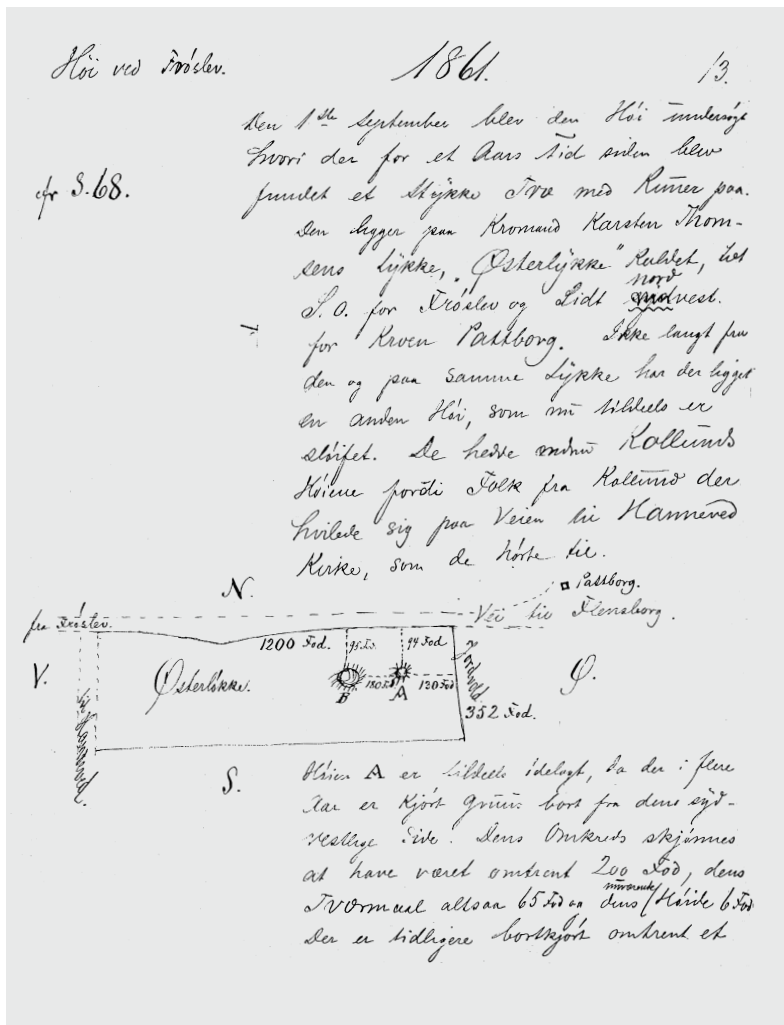 Høi ved Frøslev.
1861.
13.
Den 1ste September blev den Høi undersøgt
hvori der for et Aars Tid siden blev
cfr S. 68.
fundet et Stykke Træ med Runer paa.
Den ligger paa Kromand Karsten Thom-
sens Lykke, "Østerlykke" kaldet, let
nord
S. O. for Frøslev og Lidt sydvest.
for Kroen Pattborg. Ikke langt fra
den og paa samme Lykke har der ligget
en anden Høi, som nu tildeels er
sløifet. De hedde endnu Kollunds
Høiene fordi Folk fra Kollund der
hvilede sig paa Veien til Hanneved
Kirke, som de hørte til.
N.
Pattborg.
fra Frøslev.
Vei til Flensborg.
1200 Fod.
95 Fd.
94 Fod
Jordvold.
V.
Østerløkke.
B
180 Fd
A
120 Fod
Ø.
352 Fod.
S.
Høien A er tildeels ødelagt, da der i flere
Aar er kjørt Gruus bort fra dens syd-
vestlige Side. Dens Omkreds skjønnes
at have været omtrent 200 Fod, dens
nuværende
Tværmaal altsaa 65 Fod og dens Høide 6 Fod
Der er tidligere bortkjørt omtrent et